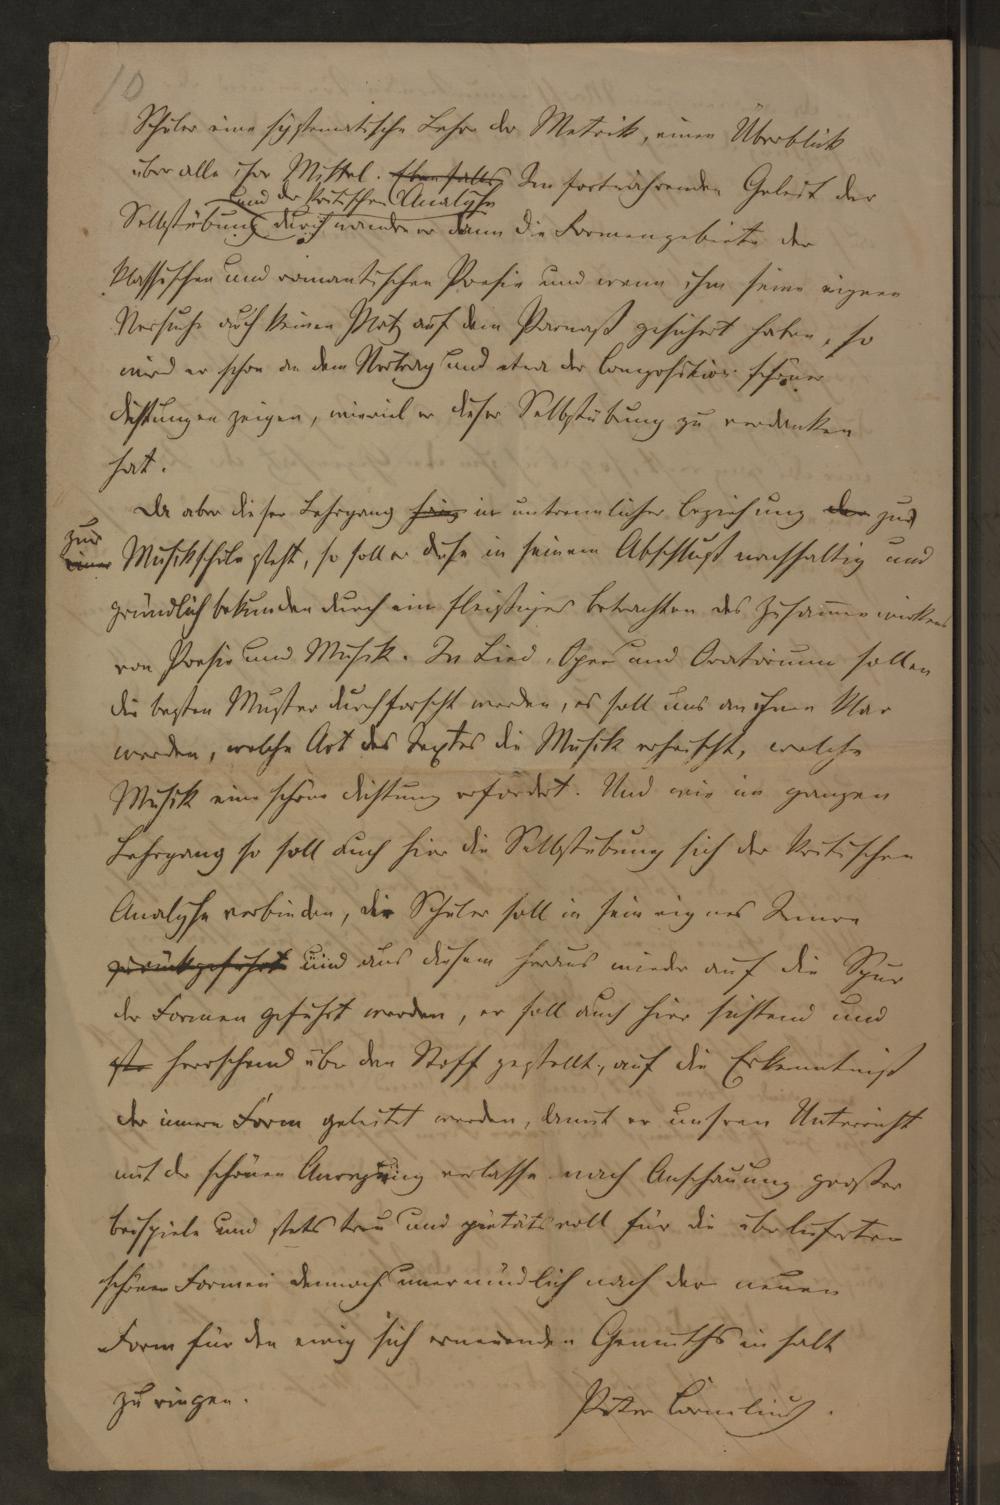 10
Schüler eine systematische Lehre der Metrik, einen Überblick
über alle ihre Mittel. Ebenfalls Im fortwährenden Geleit der
und der kritischen Analyse
Selbstübung durchwandre er dann die Formengebiete der
klassischen und romantischen Poesie und wenn ihm seine eignen
Versuche auch keinen Platz auf dem Parnaß gesichert haben, so
wird er schon an dem Vortrag und etwa der Composition schöner
Dichtungen zeigen, wieviel er dieser Selbstübung zu verdanken
hat.
Da aber dieser Lehrgang in untrennlicher Beziehung der zur
zur
einer Musikschule steht, so soll er diese in seinem Abschluß nachhaltig und
gründlich bekunden durch ein fleißiges Betrachten des Zusammenwirkens
von Poesie und Musik. In Lied, Oper und Oratorium sollen
die besten Muster durchforscht werden, es soll uns an ihnen klar
werden, welche Art des Textes die Musik erheischt, welche
Musik eine schöne Dichtung erfordert. Und wie im ganzen
Lehrgang so soll auch hier die Selbstübung sich der kritischen
Analyse verbinden, der Schüler soll in sein eignes Innere
zurückgeführt und aus diesem heraus wieder auf die Spur
der Formen geführt werden, er soll auch hier sichtend und
herrschend über den Stoff gestellt, auf die Erkenntniß
der innern Form geleitet werden, damit er unsren Unterricht
mit der schönen Anregung verlasse nach Anschauung großer
Beispiele und stets treu und pietätsvoll für die überlieferten
schönen Formen dennoch unermüdlich nach der neuen
Form für den ewig sich erneuenden Gemüthsinhalt
zu ringen.
Peter Cornelius.